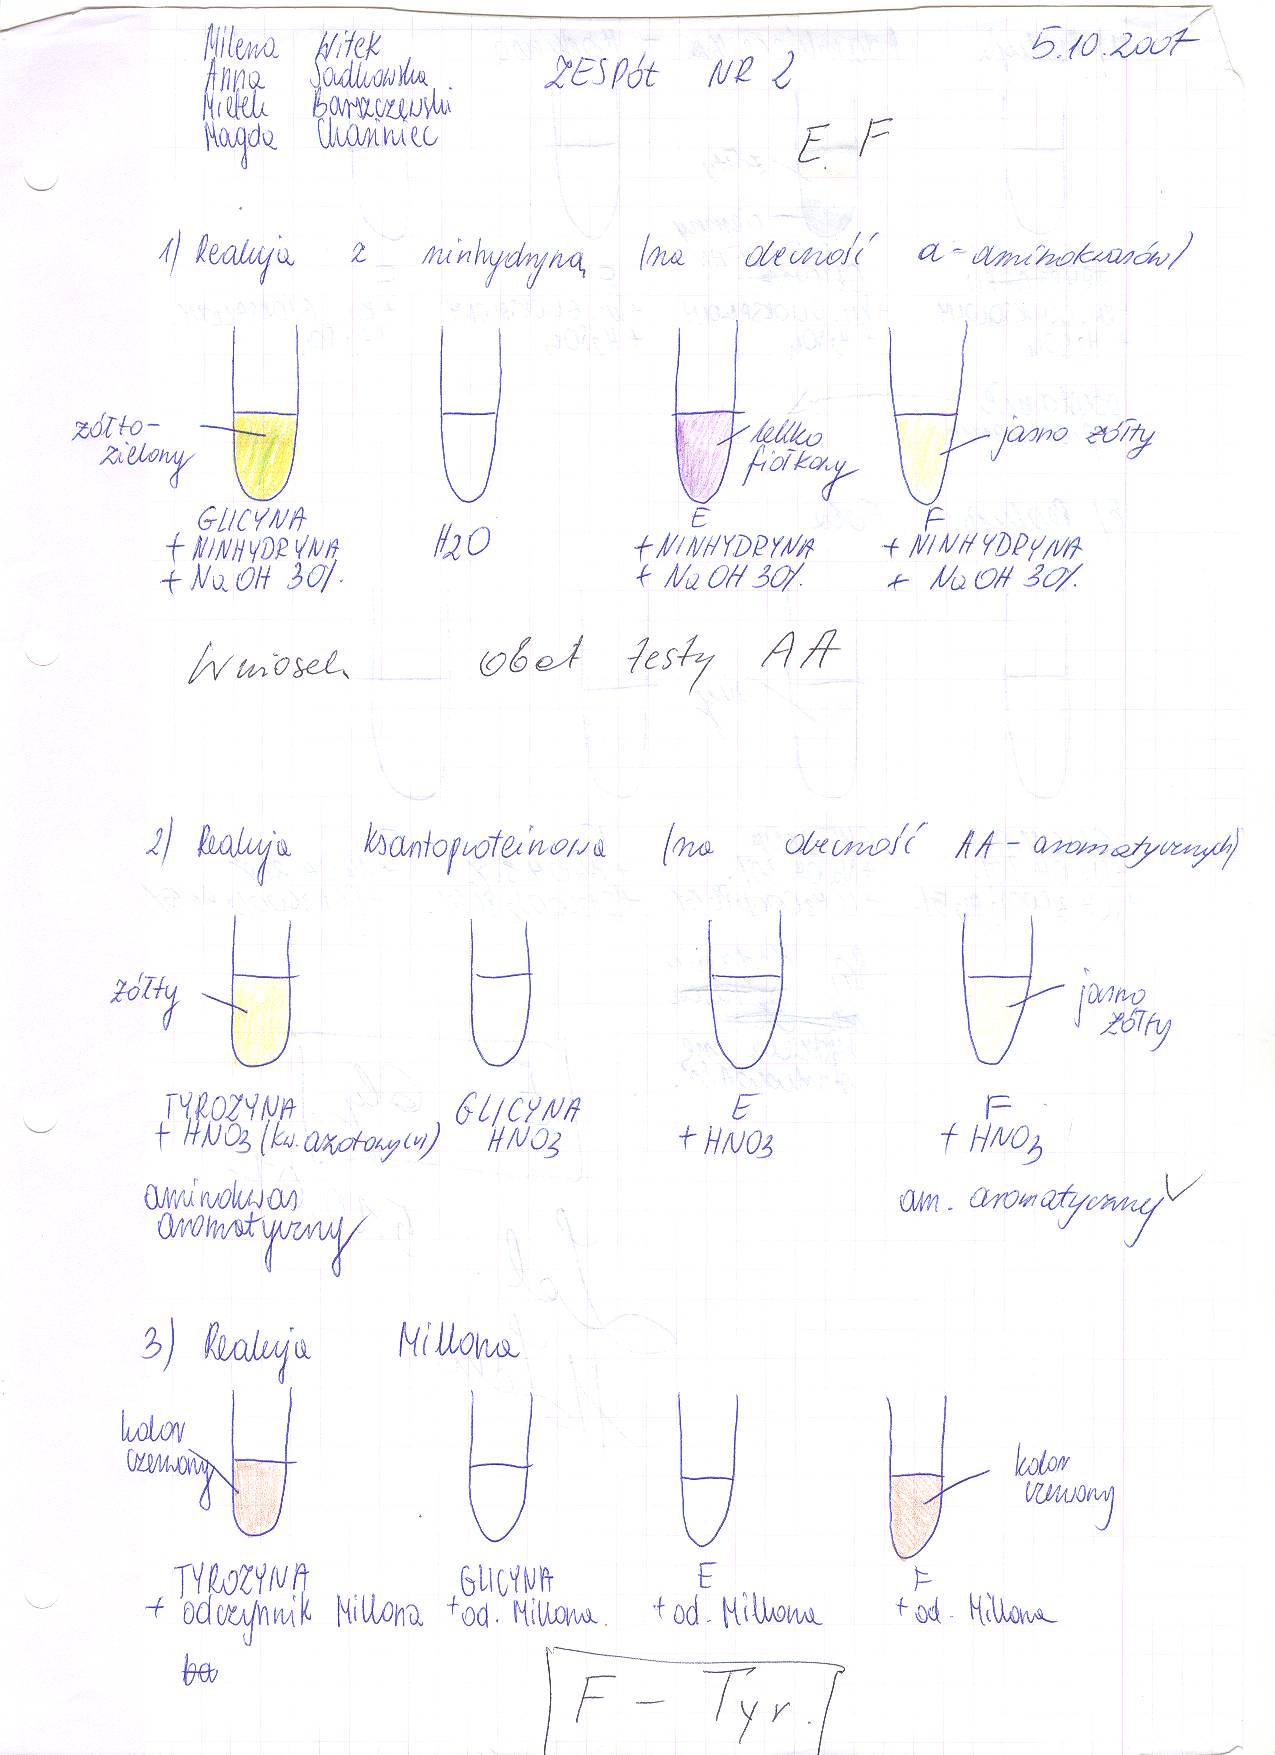 Milena Witek
Anna Sadkowska
Mietek Barszczewski
Magda Charmiec
ZESPÓŁ NR 2
5.10.2007
E. F
1) Reakcja z ninhydryną (na obecność a-aminokwasów)
żółto-
zielony
lekko
fiołkowy
jasno żółty
GLICYNA
+ NINHYDRYNA
+ NaOH 30%.
H2O
E
+ NINHYDRYNA
+ NaOH 30%.
F
+ NINHYDRYNA
+ NaOH 30%.
Wniosek testy AA
2) Reakcja ksantoproteinowa (na obecność AA-aromatycznych)
żółty
jasno
żółty
TYROZYNA
+ HNO3 (kw. azotowy(V))
GLICYNA
HNO3
E
+ HNO3
F
+ HNO3
aminokwas
aromatyczny
am. aromatyczny
3) Reakcja Millona
kolor
czerwony
kolor
czerwony
TYROZYNA
+ odczynnik Millona
GLICYNA
+ od. Millona.
E
+ od. Millona
F
+ od. Millona
F - Tyr.